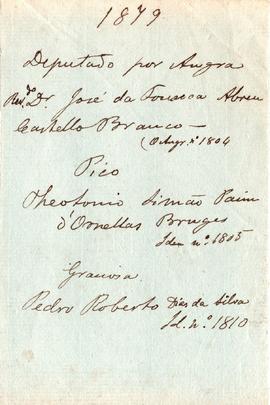 1879
Deputado por Angra
Rev.do Dr. José da Fonseca Abreu
Castello Branco —
(O Angr. n.º 1804
Pico
Theotonio Simão Paim
d'Ornellas Bruges
Idem n.º 1805
Graciosa
Pedro Roberto Dias da Silva
Id. n.º 1810